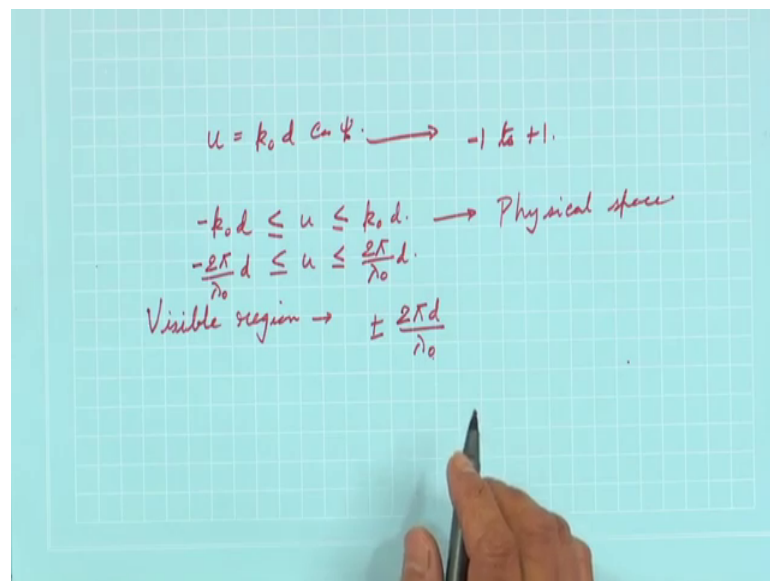 u = k₀ d Cos ψ. → -1 to +1.
-k₀d ≤ u ≤ k₀d. → Physical space
-2π/λ₀ d ≤ u ≤ 2π/λ₀ d.
Visible region → ± 2πd/λ₀